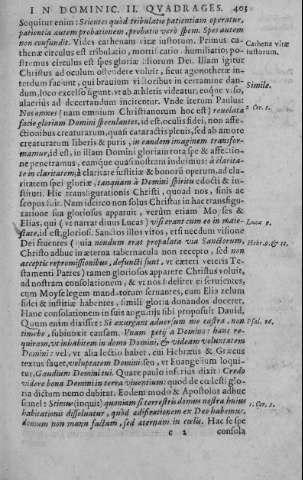 IN DOMINIC. II. QVADRAGES. 405
Sequitur enim: Scientes quòd tribulatio patientiam operatur,
patientia autem probationem, probatio verò spem. Spes autem
non confundit. Vides cathenam vitæ iustorum. Primus ca-
thenæ circulus est tribulatio, morti catio, humiliatio; po-
stremus circulus est spes gloriæ filiorum Dei. Illam igitur
Christus ad oculum ostendere voluit, sicut agonothetæ in-
terdum faciunt, qui brauium visibiliter in certamine dan-
dum, loco excelso figunt, vt ab athletis videatur, eoque
alacriùs ad decertandum incitentur. Vnde iterum Paulus:
Nos omnes (nam omnium Christianorum hoc est) reuelata
facie gloriam Domini speculantes, id est, oculis fidei, non affe-
ctionibus creaturarum, quasi cataractis plenis, sed ab amore
creaturarum liberis & puris, in eandem imaginem transfor-
mamur, id est, in illam Domini gloriam tota spe & affectio-
ne penetramus, eamque quasi nostram induimus: à clarita-
te in claritatem, à claritate iustitiæ & bonorū operum, ad cla-
ritatem spei gloriæ, tanquam à Domini spiritu edocti & in-
stituti. Hic transfigurationis Christi, quoad nos, finis ac
scopus fuit. Nam ideirco non solus Christus in hac transfigu-
ratione sua gloriosus apparuit, verùm etiam Moyses &
Elias, qui (vt narrat diuus Lucas) visi erant cum eo in maie-
state, id est gloriosi. Sanctos illos vitos, etsi nondum visione
Dei fruentes (quia nondum erat propalata via Sanctorum,
Christo adhuc in æterna tabernacula non recepto, sed non
acceptis repromissionibus, defuncti sunt, vt cæteri veteris Te-
stamenti Patres) tamen gloriosos apparere Christus voluit,
ad nostram consolationem, & vt nos si deliter ei seruientes,
cum Moyse legem mandatorum seruantes, cum Elia zelum
fidei & iustitiæ habentes, simili gloria donandos doceret.
Hanc consolationem in suis angustijs sibi proposuit Dauid,
Quum enim dixisset: Si exurgant aduersum me castra, non
timebo, subiunxit causam. Vnam petij à Domino: hanc re-
quiram, vt inhabitem in domo Domini, & videam voluntatem
Domini: vel, vt alia lectio habet, cui Hebræus & Græcus
textus fauet, voluptatem Domini seu, vt Euangelium loqui-
tur, Gaudium Domini tui. Quare paulò inferius dixit: Credo
videre bona Domini in terra viuentium: quod de cœlesti glo-
ria dictum nemo dubitat. Eodem modo & Apostolus adhuc
sanè: Scimus (inquit) quoniam si terrestris domus nostra huius
habitationis dissoluatur, quòd ædificationem ex Deo habemus,
domum non manu factam, sed æternam in cœlis. Hac se spe
c 2 consola
Cathena vitæ
iustorum.
Simile.
Lucæ 9.
Hebr. 9. & 11.
Psal. 26.